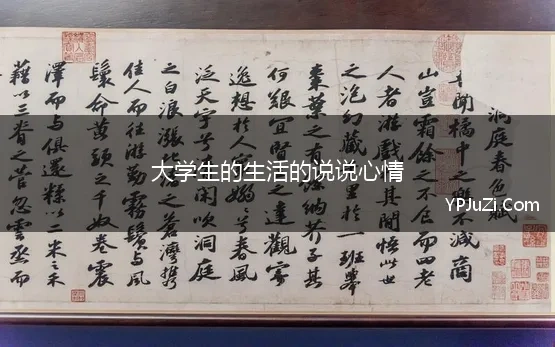 洞庭春色賦
聞橘中之樂不減商
山豈霜餘之不食而四老
人者游戲於其間悟此世
之泡幻藏千里於一班舉
棗葉之有餘納芥子其
何艱宜賢王之達觀寄
逸想於人寰嫋嫋兮春風
泛天宇兮清閑吹洞庭
之白浪漲北渚之蒼灣攜
佳人而往游勒霧鬢與風
鬟命黃頭之千奴卷震
澤而與俱還糅以二米之禾
藉以三脊之菅忽雲烝而
大学生的生活的说说心情
YPJuZi.Com